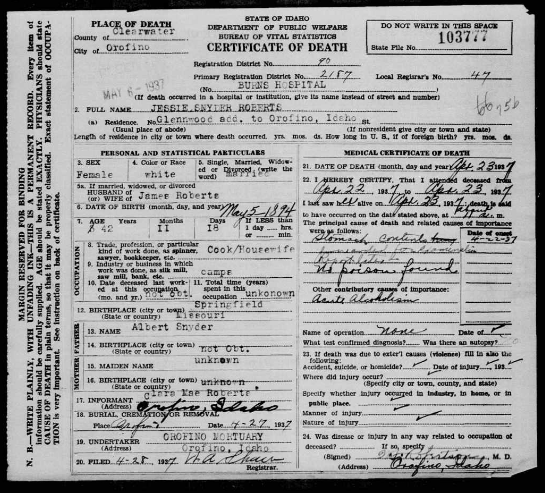 STATE OF IDAHO
DEPARTMENT OF PUBLIC WELFARE
BUREAU OF VITAL STATISTICS
CERTIFICATE OF DEATH
DO NOT WRITE IN THIS SPACE
State File No. 103777
PLACE OF DEATH
County of Clearwater
City of Orofino
Registration District No. 90
Primary Registration District No. 2187 Local Registrar's No. 47
MAY 6-1937
(No. BURNS HOSPITAL
(If death occurred in a hospital or institution, give its name instead of street and number)
2. FULL NAME JESSIE SNYDER ROBERTS
(a) Residence. No. Glennwood add. to Orofino, Idaho St.
(Usual place of abode) (If nonresident give city or town and state)
Length of residence in city or town where death occurred. yrs. mos. ds. How long in U. S., if of foreign birth? yrs. mos. ds.
MARGIN RESERVED FOR BINDING
N. B.—WRITE PLAINLY, WITH UNFADING INK—THIS IS A PERMANENT RECORD. Every item of
information should be carefully supplied. AGE should be stated EXACTLY. PHYSICIANS should state
CAUSE OF DEATH in plain terms, so that it may be properly classified. Exact statement of OCCUPA-
TION is very important. See instruction on back of certificate.
PERSONAL AND STATISTICAL PARTICULARS
3. SEX Female
4. Color or Race white
5. Single, Married, Widowed or Divorced (write the word) married
5a. If married, widowed, or divorced
HUSBAND of
(or) WIFE of James Roberts
6. DATE OF BIRTH (month, day, and year) May 5-1894
7. AGE Years 42 Months 11 Days 18 If LESS than 1 day hrs. or min.
OCCUPATION
8. Trade, profession, or particular kind of work done, as spinner, sawyer, bookkeeper, etc. Cook/Housewife
9. Industry or business in which work was done, as silk mill, saw mill, bank, etc. camps
10. Date deceased last worked at this occupation (mo. and yr.) not obt.
11. Total time (years) spent in this occupation unkonown
12. BIRTHPLACE (city or town) Springfield
(State or country) Missouri
FATHER
13. NAME Albert Snyder
14. BIRTHPLACE (city or town) not Obt.
(State or country)
MOTHER
15. MAIDEN NAME unknown
16. BIRTHPLACE (city or town) unknown
(State or country)
17. INFORMANT Clara Mae Roberts
(Address) Orofino, Idaho
18. BURIAL CREMATION OR REMOVAL
Place Orofino Date 4-27, 1937
19. UNDERTAKER OROFINO MORTUARY
(Address) Orofino, Idaho
20. FILED 4-28, 1937
Registrar.
MEDICAL CERTIFICATE OF DEATH
21. DATE OF DEATH (month, day and year) Apr 23 1937
22. I HEREBY CERTIFY, That I attended deceased from
Apr 22, 1937 to Apr 23, 1937
I last saw her alive on Apr 23, 1937, death is said
to have occurred on the date stated above, at m.
The principal cause of death and related causes of importance
were as follows: Date of onset
Stomach contents 4-22-37
No poison found
Other contributory causes of importance:
Acute Alcoholism
Name of operation None Date of
What test confirmed diagnosis? Was there an autopsy?
23. If death was due to exter'l causes (violence) fill in also the following:
Accident, suicide, or homicide? Date of injury , 193
Where did injury occur?
(Specify city or town, county, and state)
Specify whether injury occurred in industry, in home, or in
public place.
Manner of injury
Nature of injury
24. Was disease or injury in any way related to occupation of
deceased? If so, specify
(Signed) M. D.
(Address) Orofino, Idaho